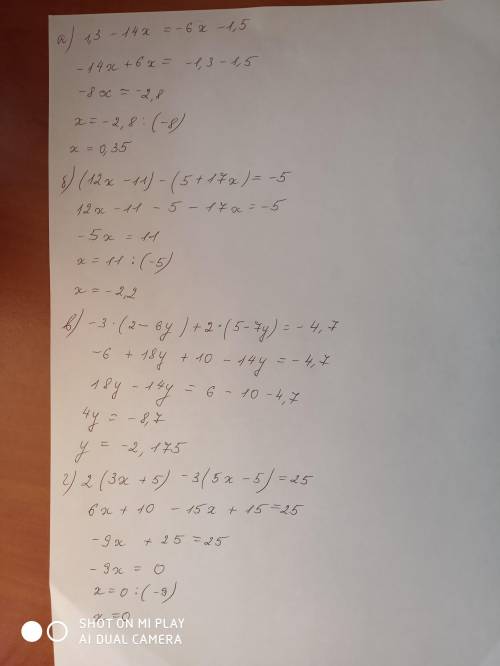 а) 1,3 - 14x = -6x - 1,5
-14x + 6x = -1,3 - 1,5
-8x = -2,8
x = -2,8 : (-8)
x = 0,35
б) (12x - 11) - (5 + 17x) = -5
12x - 11 - 5 - 17x = -5
-5x = 11
x = 11 : (-5)
x = -2,2
в) -3 · (2 - 6y) + 2 · (5 - 7y) = -4,7
-6 + 18y + 10 - 14y = -4,7
18y - 14y = 6 - 10 - 4,7
4y = -8,7
y = -2,175
г) 2 (3x + 5) - 3 (5x - 5) = 25
6x + 10 - 15x + 15 = 25
-9x + 25 = 25
-9x = 0
x = 0 : (-9)
x = 0
SHOT ON MI PLAY
AI DUAL CAMERA